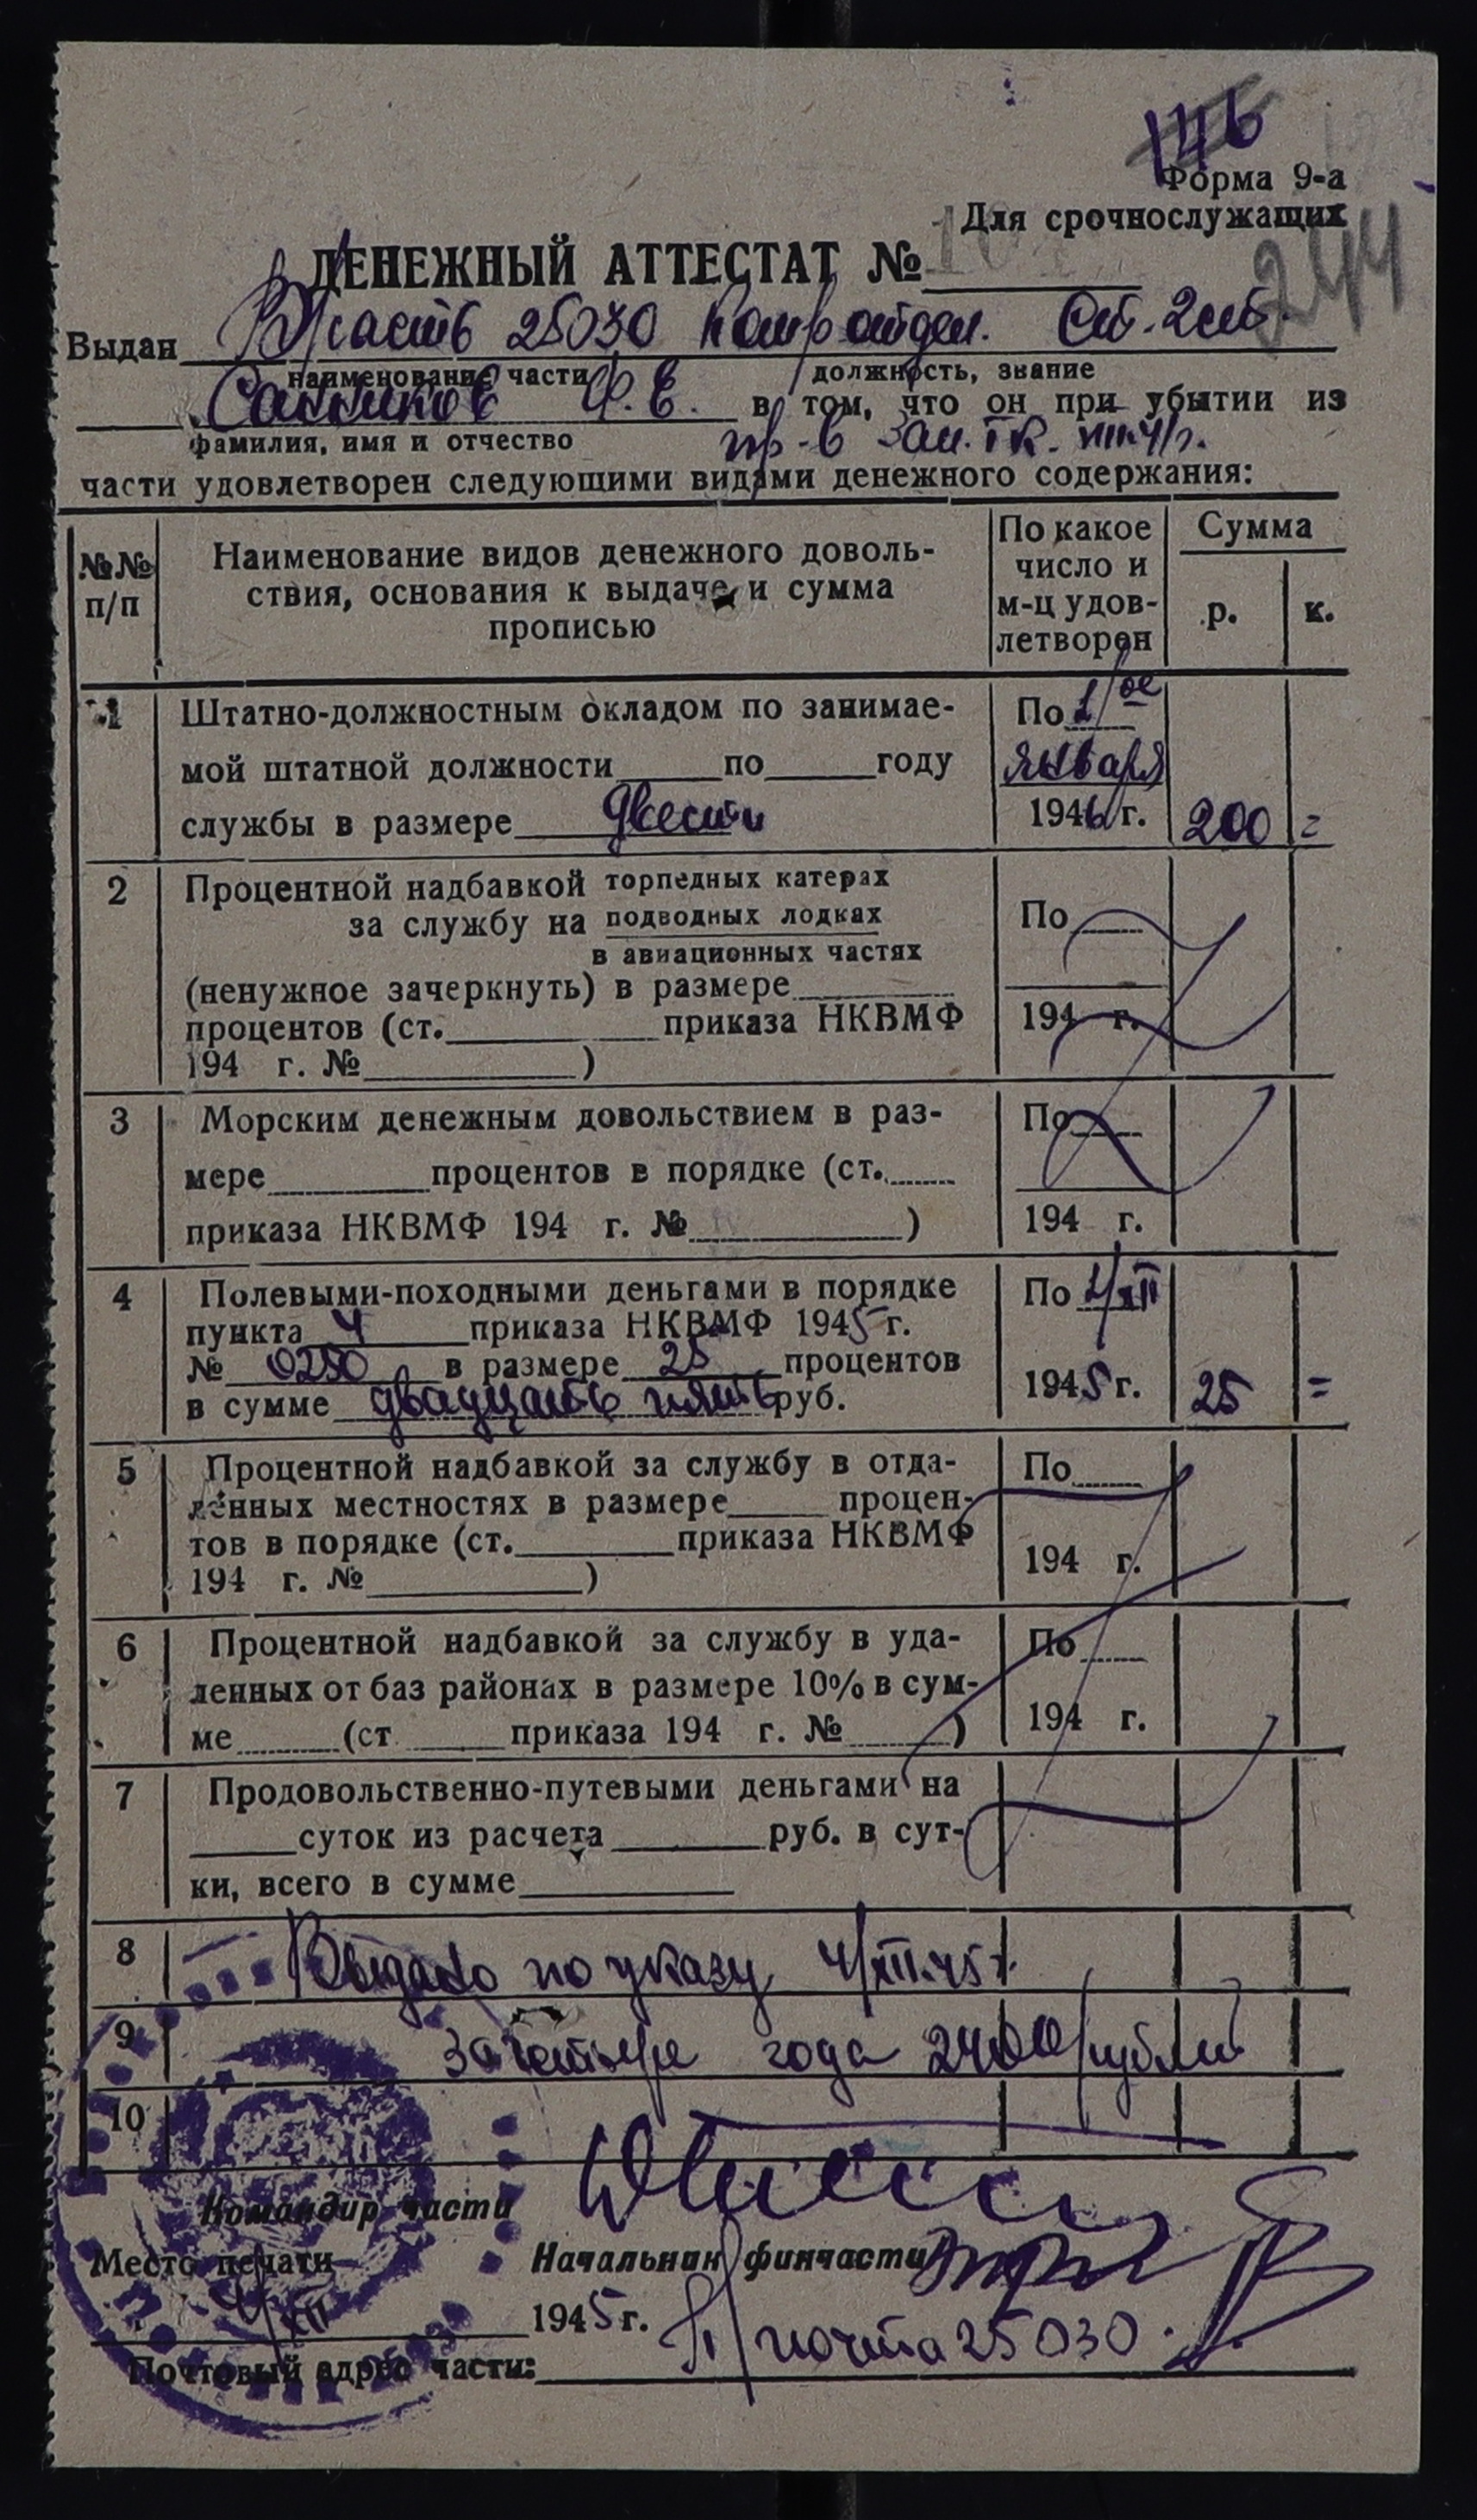 146
Форма 9-а
Для срочнослужащих
244
ДЕНЕЖНЫЙ АТТЕСТАТ №
Выдан В/часть 25030 Ком/отдел. Ст. 2 ст.
наименование части должность, звание
Ф. Е. в том, что он при убытии из
фамилия, имя и отчество
части удовлетворен следующими видами денежного содержания:
№№ п/п
Наименование видов денежного доволь-
ствия, основания к выдаче и сумма
прописью
По какое
число и
м-ц удов-
летворен
Сумма
р. к.
1 Штатно-должностным окладом по занимае- По 1/ое
мой штатной должности по году января
службы в размере двести 1946 г. 200 =
2 Процентной надбавкой торпедных катерах
за службу на подводных лодках По
в авиационных частях
(ненужное зачеркнуть) в размере
процентов (ст. приказа НКВМФ 194 г.
194 г. № )
3 Морским денежным довольствием в раз- По
мере процентов в порядке (ст.
приказа НКВМФ 194 г. № ) 194 г.
4 Полевыми-походными деньгами в порядке По 1/XII
пункта 4 приказа НКВМФ 1945 г.
№ 0250 в размере 25 процентов
в сумме двадцать пять руб. 1945 г. 25 =
5 Процентной надбавкой за службу в отда- По
ленных местностях в размере процен-
тов в порядке (ст. приказа НКВМФ
194 г. № ) 194 г.
6 Процентной надбавкой за службу в уда- По
ленных от баз районах в размере 10% в сум-
ме (ст приказа 194 г. № ) 194 г.
7 Продовольственно-путевыми деньгами на
суток из расчета руб. в сут-
ки, всего в сумме
8 Выдано по указу 4/XII.45 г.
9 За четыре года 2400 рублей
10
Командир части
Место печати Начальник финчасти
4/XII 1945 г.
Почтовый адрес части: П/почта 25030